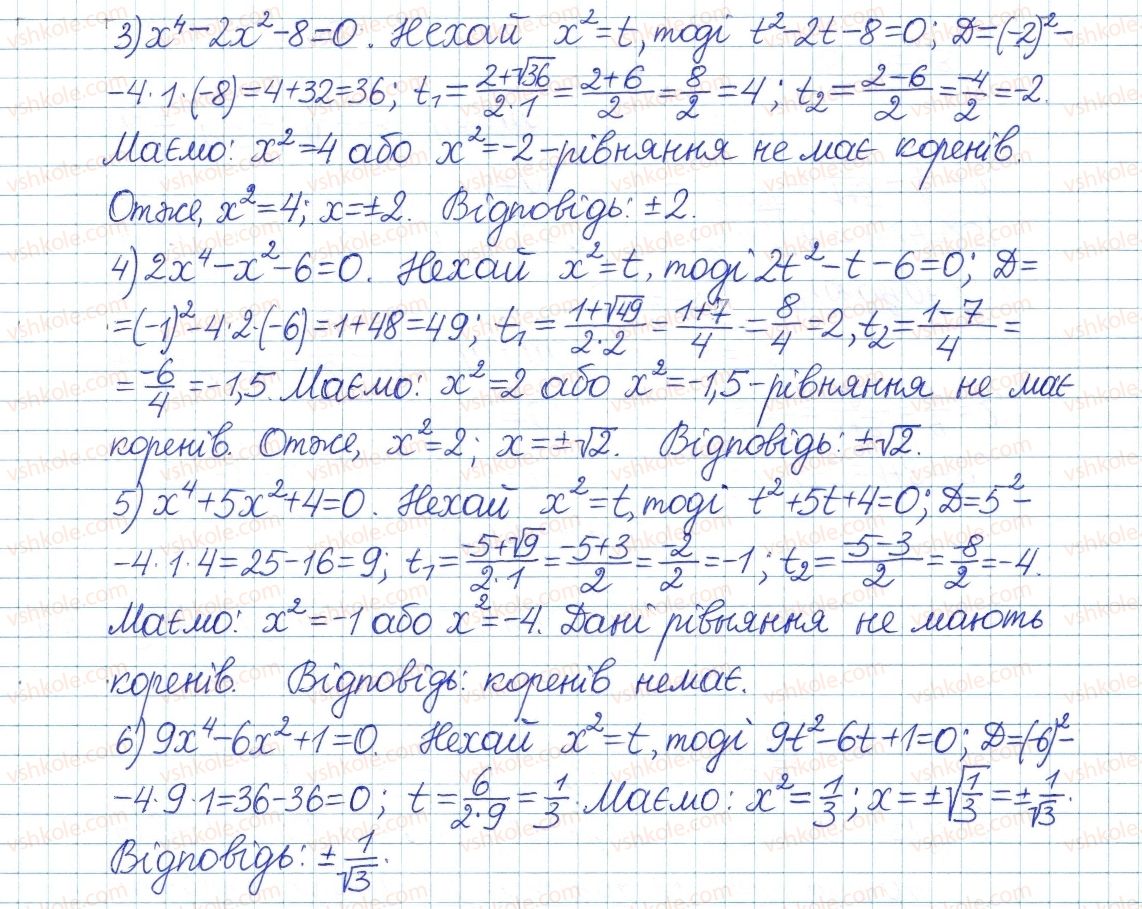 3) x⁴-2x²-8=0. Нехай x²=t, тоді t²-2t-8=0; D=(-2)²-
-4·1·(-8)=4+32=36; t₁=(2+√36)/(2·1)=(2+6)/2=8/2=4; t₂=(2-6)/2=-4/2=-2.
Маємо: x²=4 або x²=-2-рівняння не має коренів.
Отже, x²=4; x=±2. Відповідь: ±2.
4) 2x⁴-x²-6=0. Нехай x²=t, тоді 2t²-t-6=0; D=
=(-1)²-4·2·(-6)=1+48=49; t₁=(1+√49)/(2·2)=(1+7)/4=8/4=2, t₂=(1-7)/4=
=-6/4=-1,5. Маємо: x²=2 або x²=-1,5-рівняння не має
коренів. Отже, x²=2; x=±√2. Відповідь: ±√2.
5) x⁴+5x²+4=0. Нехай x²=t, тоді t²+5t+4=0; D=5²-
-4·1·4=25-16=9; t₁=(-5+√9)/(2·1)=(-5+3)/2=-2/2=-1; t₂=(-5-3)/2=-8/2=-4.
Маємо: x²=-1 або x²=-4. Дані рівняння не мають
коренів. Відповідь: коренів немає.
6) 9x⁴-6x²+1=0. Нехай x²=t, тоді 9t²-6t+1=0; D=(-6)²-
-4·9·1=36-36=0; t=6/(2·9)=1/3. Маємо: x²=1/3; x=±√(1/3)=±1/√3.
Відповідь: ±1/√3.
vshkole.com